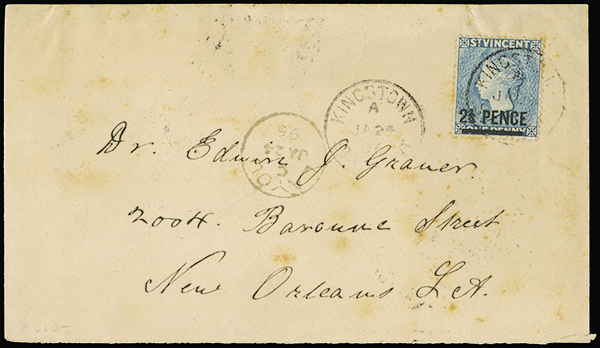 ST VINCENT
KINGSTOWN
2½ PENCE
ONE PENNY
KINGSTOWN
A
JA 24
96
Dr. Edwin J. Graner.
2004. Baronne Street
New Orleans LA.